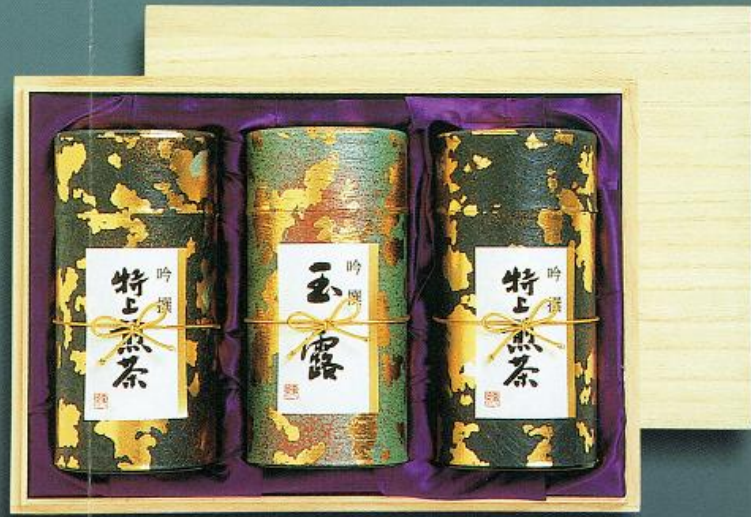 吟撰
特上煎茶
吟撰
玉露
吟撰
特上煎茶